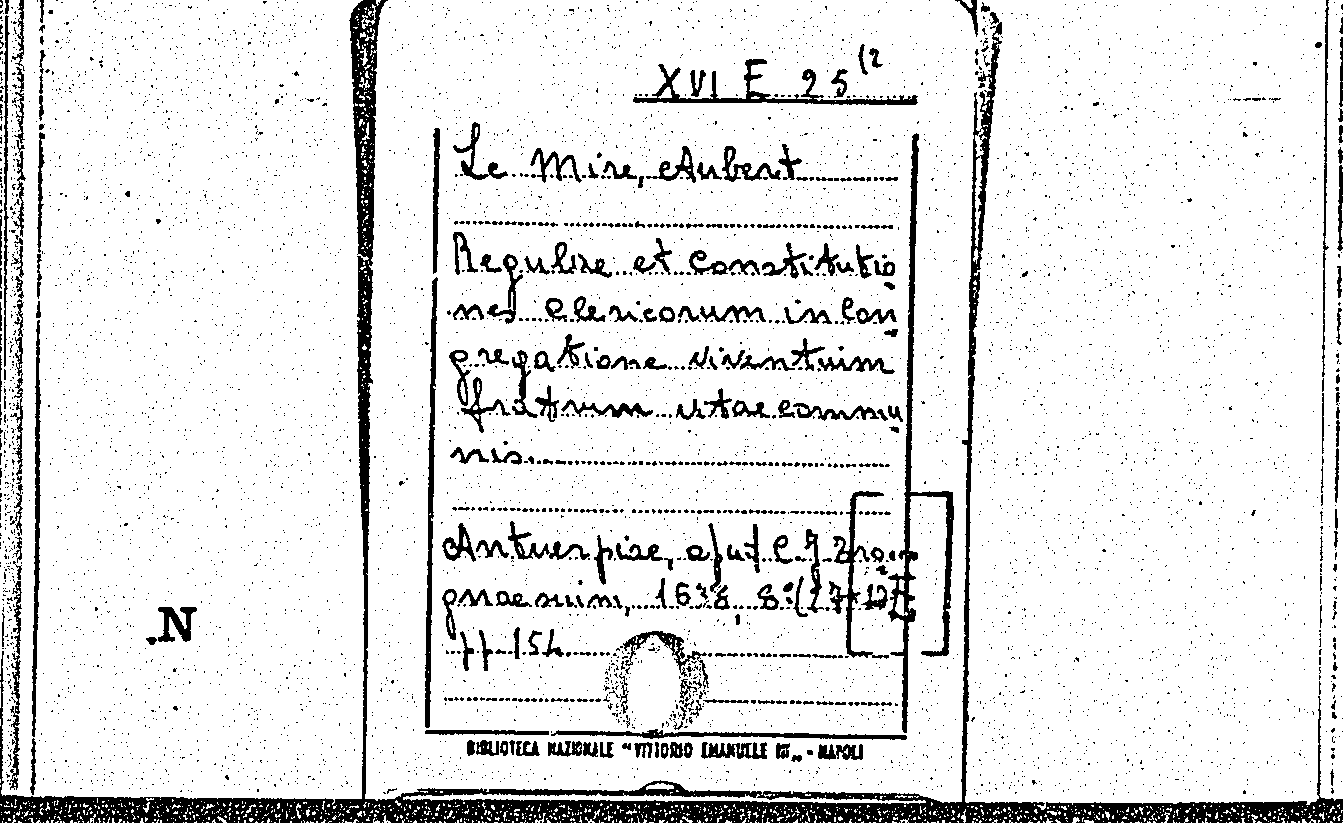 XVI E 25 (2
Le Mire, Aubert
Regulae et Constitutio
nes Clericorum in Con
gregatione viventium
fratrum vitae commu
nis.
Antuerpiae, apud C. J.
1638, 8°
pp 154
.N
BIBLIOTECA NAZIONALE "VITTORIO EMANUELE III" - NAPOLI